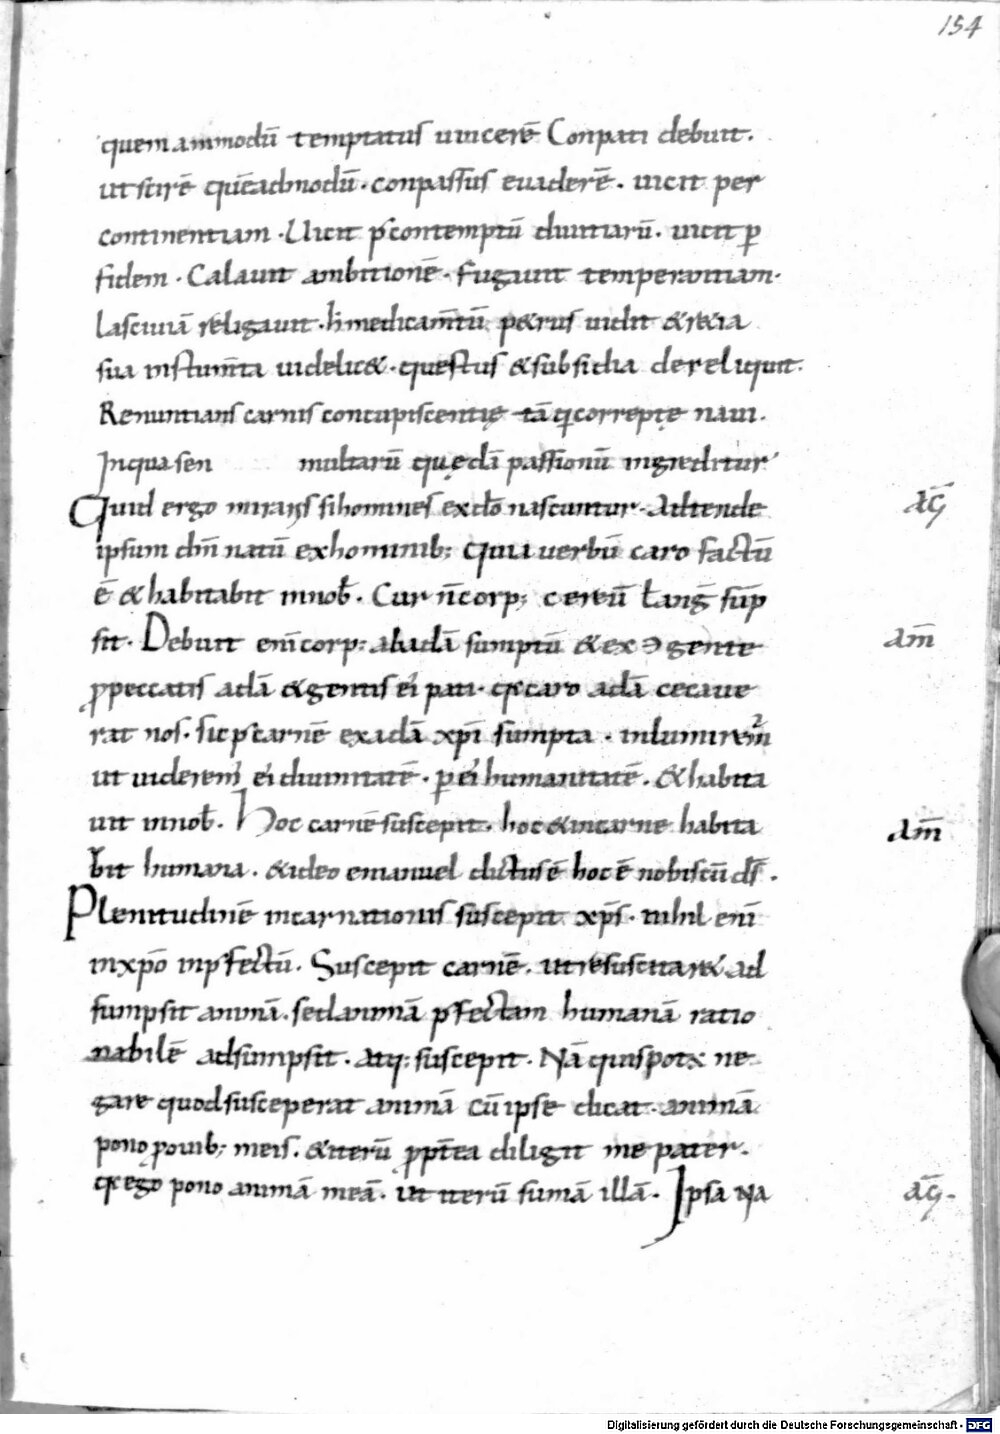 154
quemammodū temptatus uincerē Conpati debuit.
ut scirē quēadmodū. conpassus euaderē. uicit per
continentiam. Uicit p contemptū diuitiarū. uicit p
fidem. Calauit ambitionē. fugauit temperantiam.
lasciuiā religauit. medicam̄tū petrus uidit & retia
sua instrum̄ta uidelic&. questus & subsidia dereliquit.
Renuntians carnis concupiscentię tā correpte naui.
Inqua sen multarū quędā passionū ingreditur
Quid ergo miraris si homines exdō nascuntur. Adtende aḡ
ipsum dm̄ natū ex hominib; Quia uerbū caro factū
ē & habitabit innob̄. Cur n̄ corp; cereū t̄ anḡ sūp
sit. Debuit eni corp; abadā sumptū & ex gente am̄
p peccatis adā & gentis ei pati. caro adā cecaue
rat nos. sic p carnē ex adā xp̄i sumpta. inlumirem̄
ut uiderem ei diuinitatē. p ei humanitatē. & habita
uit innob̄. Hoc carnē suscepit. hoc & incarne habita am̄
bit humana. & ideo emanuel dictus ē hoc ē nobiscū ds̄.
Plenitudinē incarnationis suscepit xp̄s. nihil eni
inxp̄o inpfectū. Suscepit carnē. ut resuscitar&. ad
sumpsit animā. sed animā pfectam humanā ratio
nabilē adsumpsit. atq; suscepit. Nā quis pot& ne
gare quod susceperat animā cū ipse dicat. animā
pono p ouib; meis. & iterū ppt̄ea diligit me pater.
ego pono animā meā. ut iterū sumā illā. Ipsa NA aḡ.
Digitalisierung gefördert durch die Deutsche Forschungsgemeinschaft - DFG